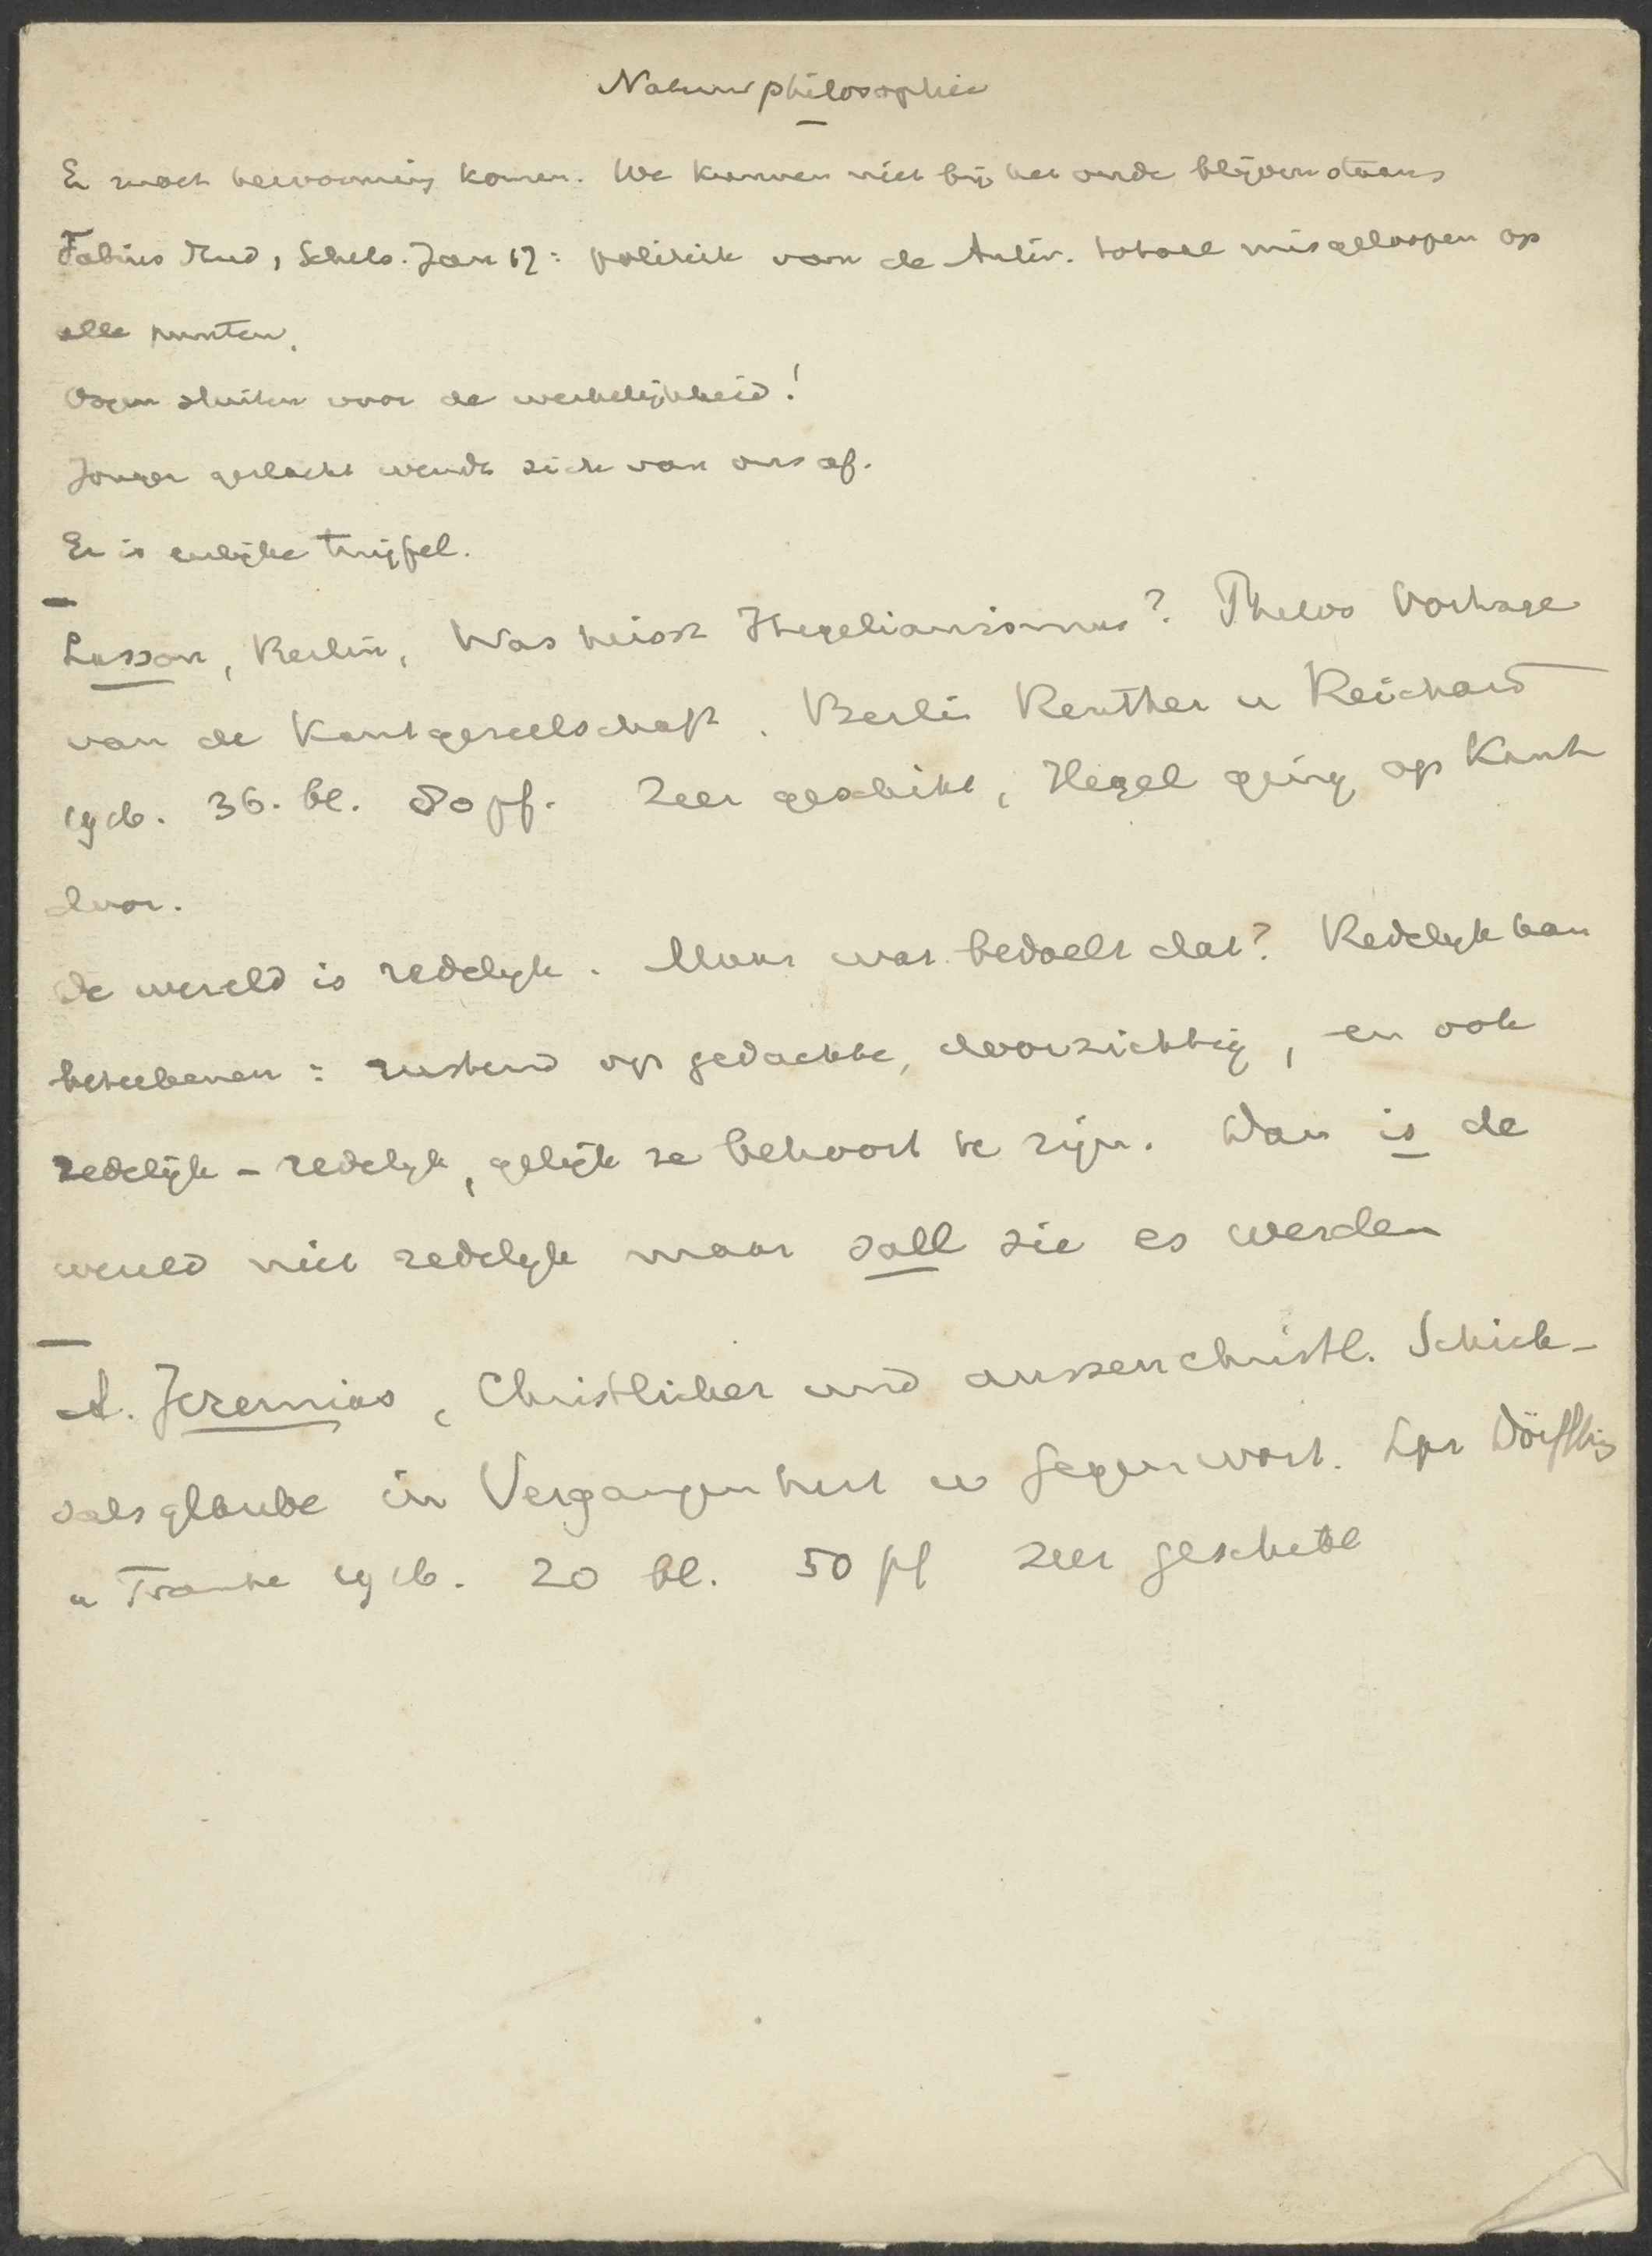 Naturphilosophie
Er moet hervorming komen. We kunnen niet bij het oude blijven staan
Fabius Stud, Schels. Jan 17: politiek van de Antir. totaal misgeloopen op
alle punten.
Oogen sluiten voor de werkelijkheid!
Jonger geslacht wendt zich van ons af.
Er is eerlijke twijfel.
Lasson, Berlin, Was heisst Hegelianismus? Philos Vortrage
van de Kantgesellschaft. Berlin Reuther u Reichard
1916. 36. bl. 80 pf. Zeer geschikt, Hegel ging op Kant
door.
de wereld is redelijk. Maar wat bedoelt dat? Redelijk kan
beteekenen: rustend op gedachte, doorzichtig, en ook
redelijk - redelijk, gelijk ze behoort te zijn. Dan is de
wereld niet redelijk maar soll sie es werden
A. Jeremias, Christlicher und aussenchristl. Schick-
salsglaube in Vergangenheit u Gegenwart. Lpz Dörffling
u Franke 1916. 20 bl. 50 pf zeer geschikt